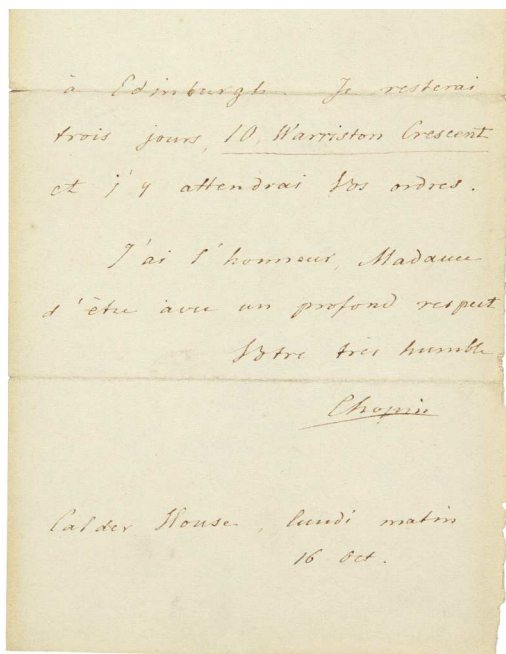 à Edinburgh. Je resterai
trois jours, 10, Warriston Crescent
et j'y attendrai Vos ordres.
J'ai l'honneur, Madame
d'être avec un profond respect
Votre très humble
Chopin
Calder House, lundi matin
16 Oct.